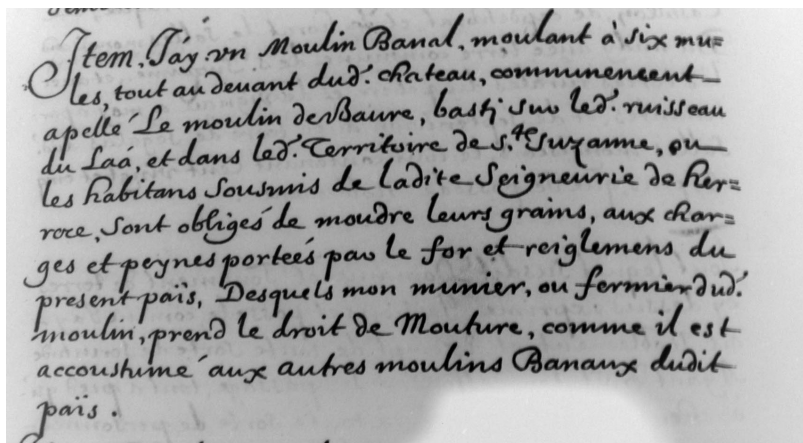 Item. J'áy un Moulin Banal, moulant à six mu=
les, tout au devant dud.t chateau, communement
apellé Le moulin de Baure, basti sur led.t ruisseau
du Laá, et dans led.t Territoire de S.te Suzanne, ou
les habitans sousmis de ladite Seigneurie de Her=
roce, sont obligés de moudre leurs grains, aux char=
ges et peynes porteés par le for et reiglemens du
present païs, Desquels mon munier, ou fermier dud.t
moulin, prend le droit de Mouture, comme il est
accoustumé aux autres moulins Banaux dudit
païs.